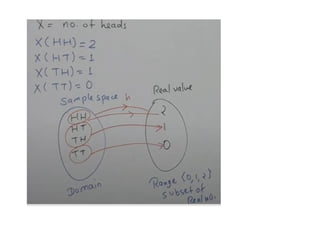 X = no. of heads
X(HH) = 2
X(HT) = 1
X(TH) = 1
X(TT) = 0
Sample space
Real value
HH
HT
TH
TT
2
1
0
Domain
Range {0,1,2}
subset of
Real no.